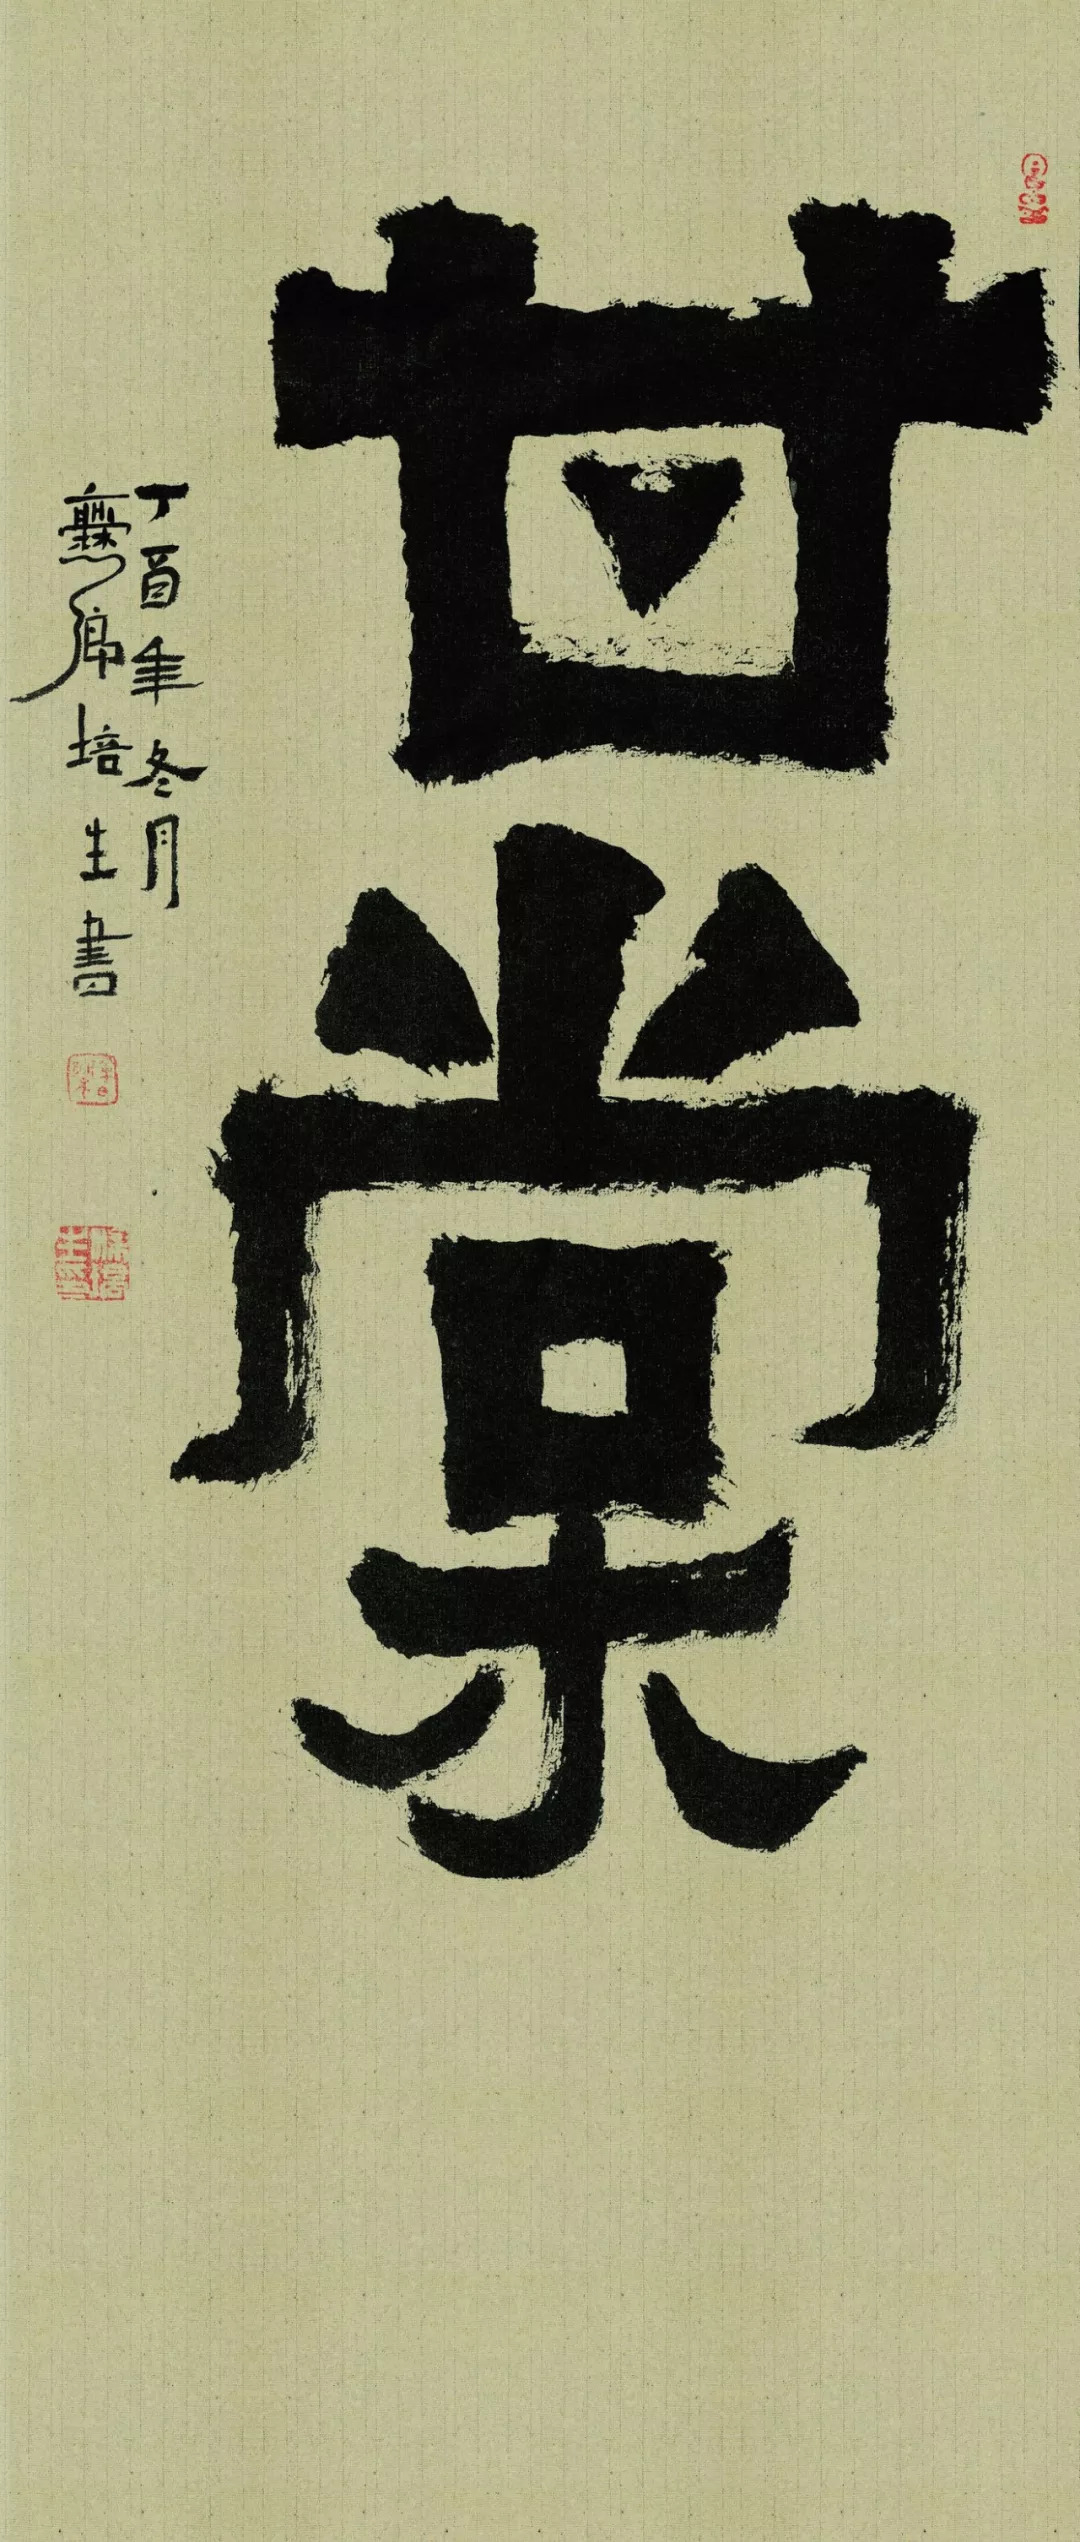 甘棠
丁酉年冬月
爨鄉培生書